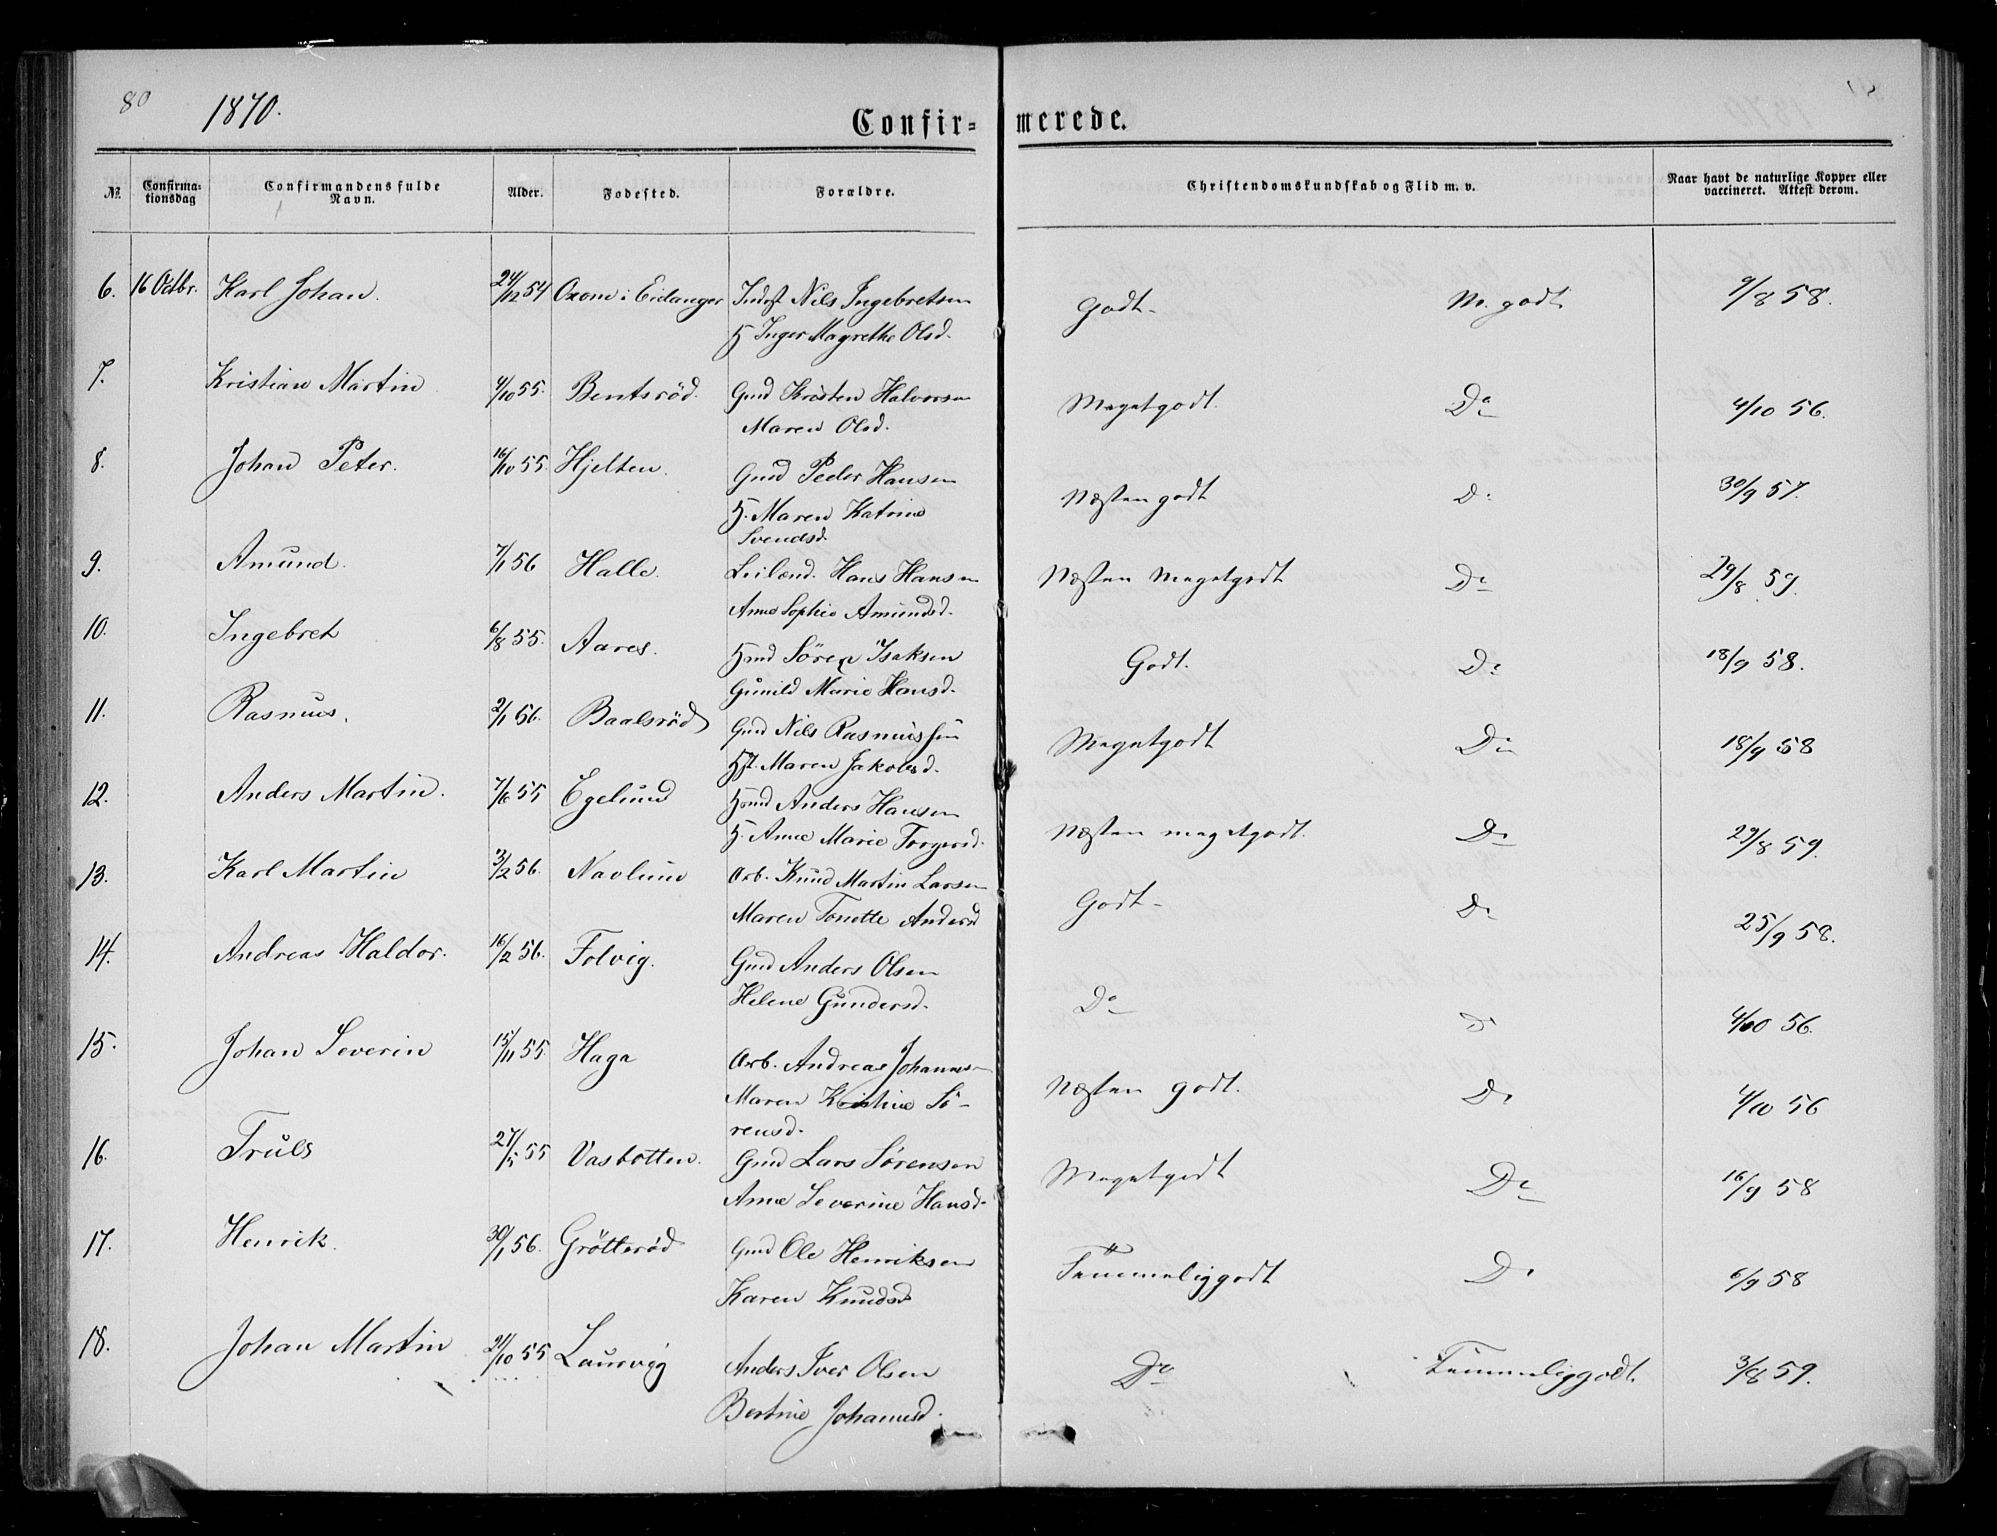 80
1870.
Confir=merede.
№
Confirma-
tionsdag
Confirmandens fulde
Navn.
Alder.
Fødested.
Forældre.
Christendomskundskab og Flid m. v.
Naar havt de naturlige Kopper eller
vaccineret. Attest derom.
6. 16 Octbr. Karl Johan. 24/12 54 Oxom i Eidanger Indst Nils Ingebretsen Godt. M. godt 9/8 58.
H Inger Magrethe Olsd.
7. Kristian Martin 4/10 55. Bentsröd. Gmd Kristen Halvorsen Megetgodt. Do 4/10 56.
Maren Olsd.
8. Johan Peter. 16/10 55. Hjelten. Gmd Peder Hansen Næsten godt Do 30/9 57.
H. Maren Katrine
Svendsd.
9. Amund. 7/1 56 Halle. Leilænd. Hans Hansen Næsten Megetgodt Do 29/8 59.
Anne Sophie Amundsd.
10. Ingebret 6/8 55. Aares. Hmd Sören Isaksen Godt. Do 18/9 58.
Gunild Marie Hansd.
11. Rasmus. 2/1 56. Baalsröd Gmd Nils Rasmussen Megetgodt Do 18/9 58
Hst. Maren Jakobsd.
12. Anders Martin. 7/6 55 Egelund Hmd Anders Hansen Næsten megetgodt. Do 29/8 59.
H. Anne Marie Torgersd.
13. Karl Martin 3/2 56. Navlund Arb. Knud Martin Larsen Godt Do 25/9 58.
Maren Tonette Andersd
14. Andreas Haldor. 16/2 56. Folvig. Gmd Anders Olsen Do Do 4/10 56.
Helene Gundersd.
15. Johan Severin 15/11 55 Haga Arb. Andreas Johannesen Næsten godt. Do 4/10 56
Maren Kristine Sö-
rensd.
16. Truls 27/5 55 Vasbotten. Gmd Lars Sörensen Megetgodt Do 16/9 58
Anne Severine Hansd.
17. Henrik. 30/1 56. Grötteröd Gmd Ole Henriksen Temmeliggodt Do 6/9 58
Karen Knudsd
18. Johan Martin 21/10 55 Laurvig Anders Iver Olsen Do Temmeliggodt. 3/8 59.
Bertine Johannesd.